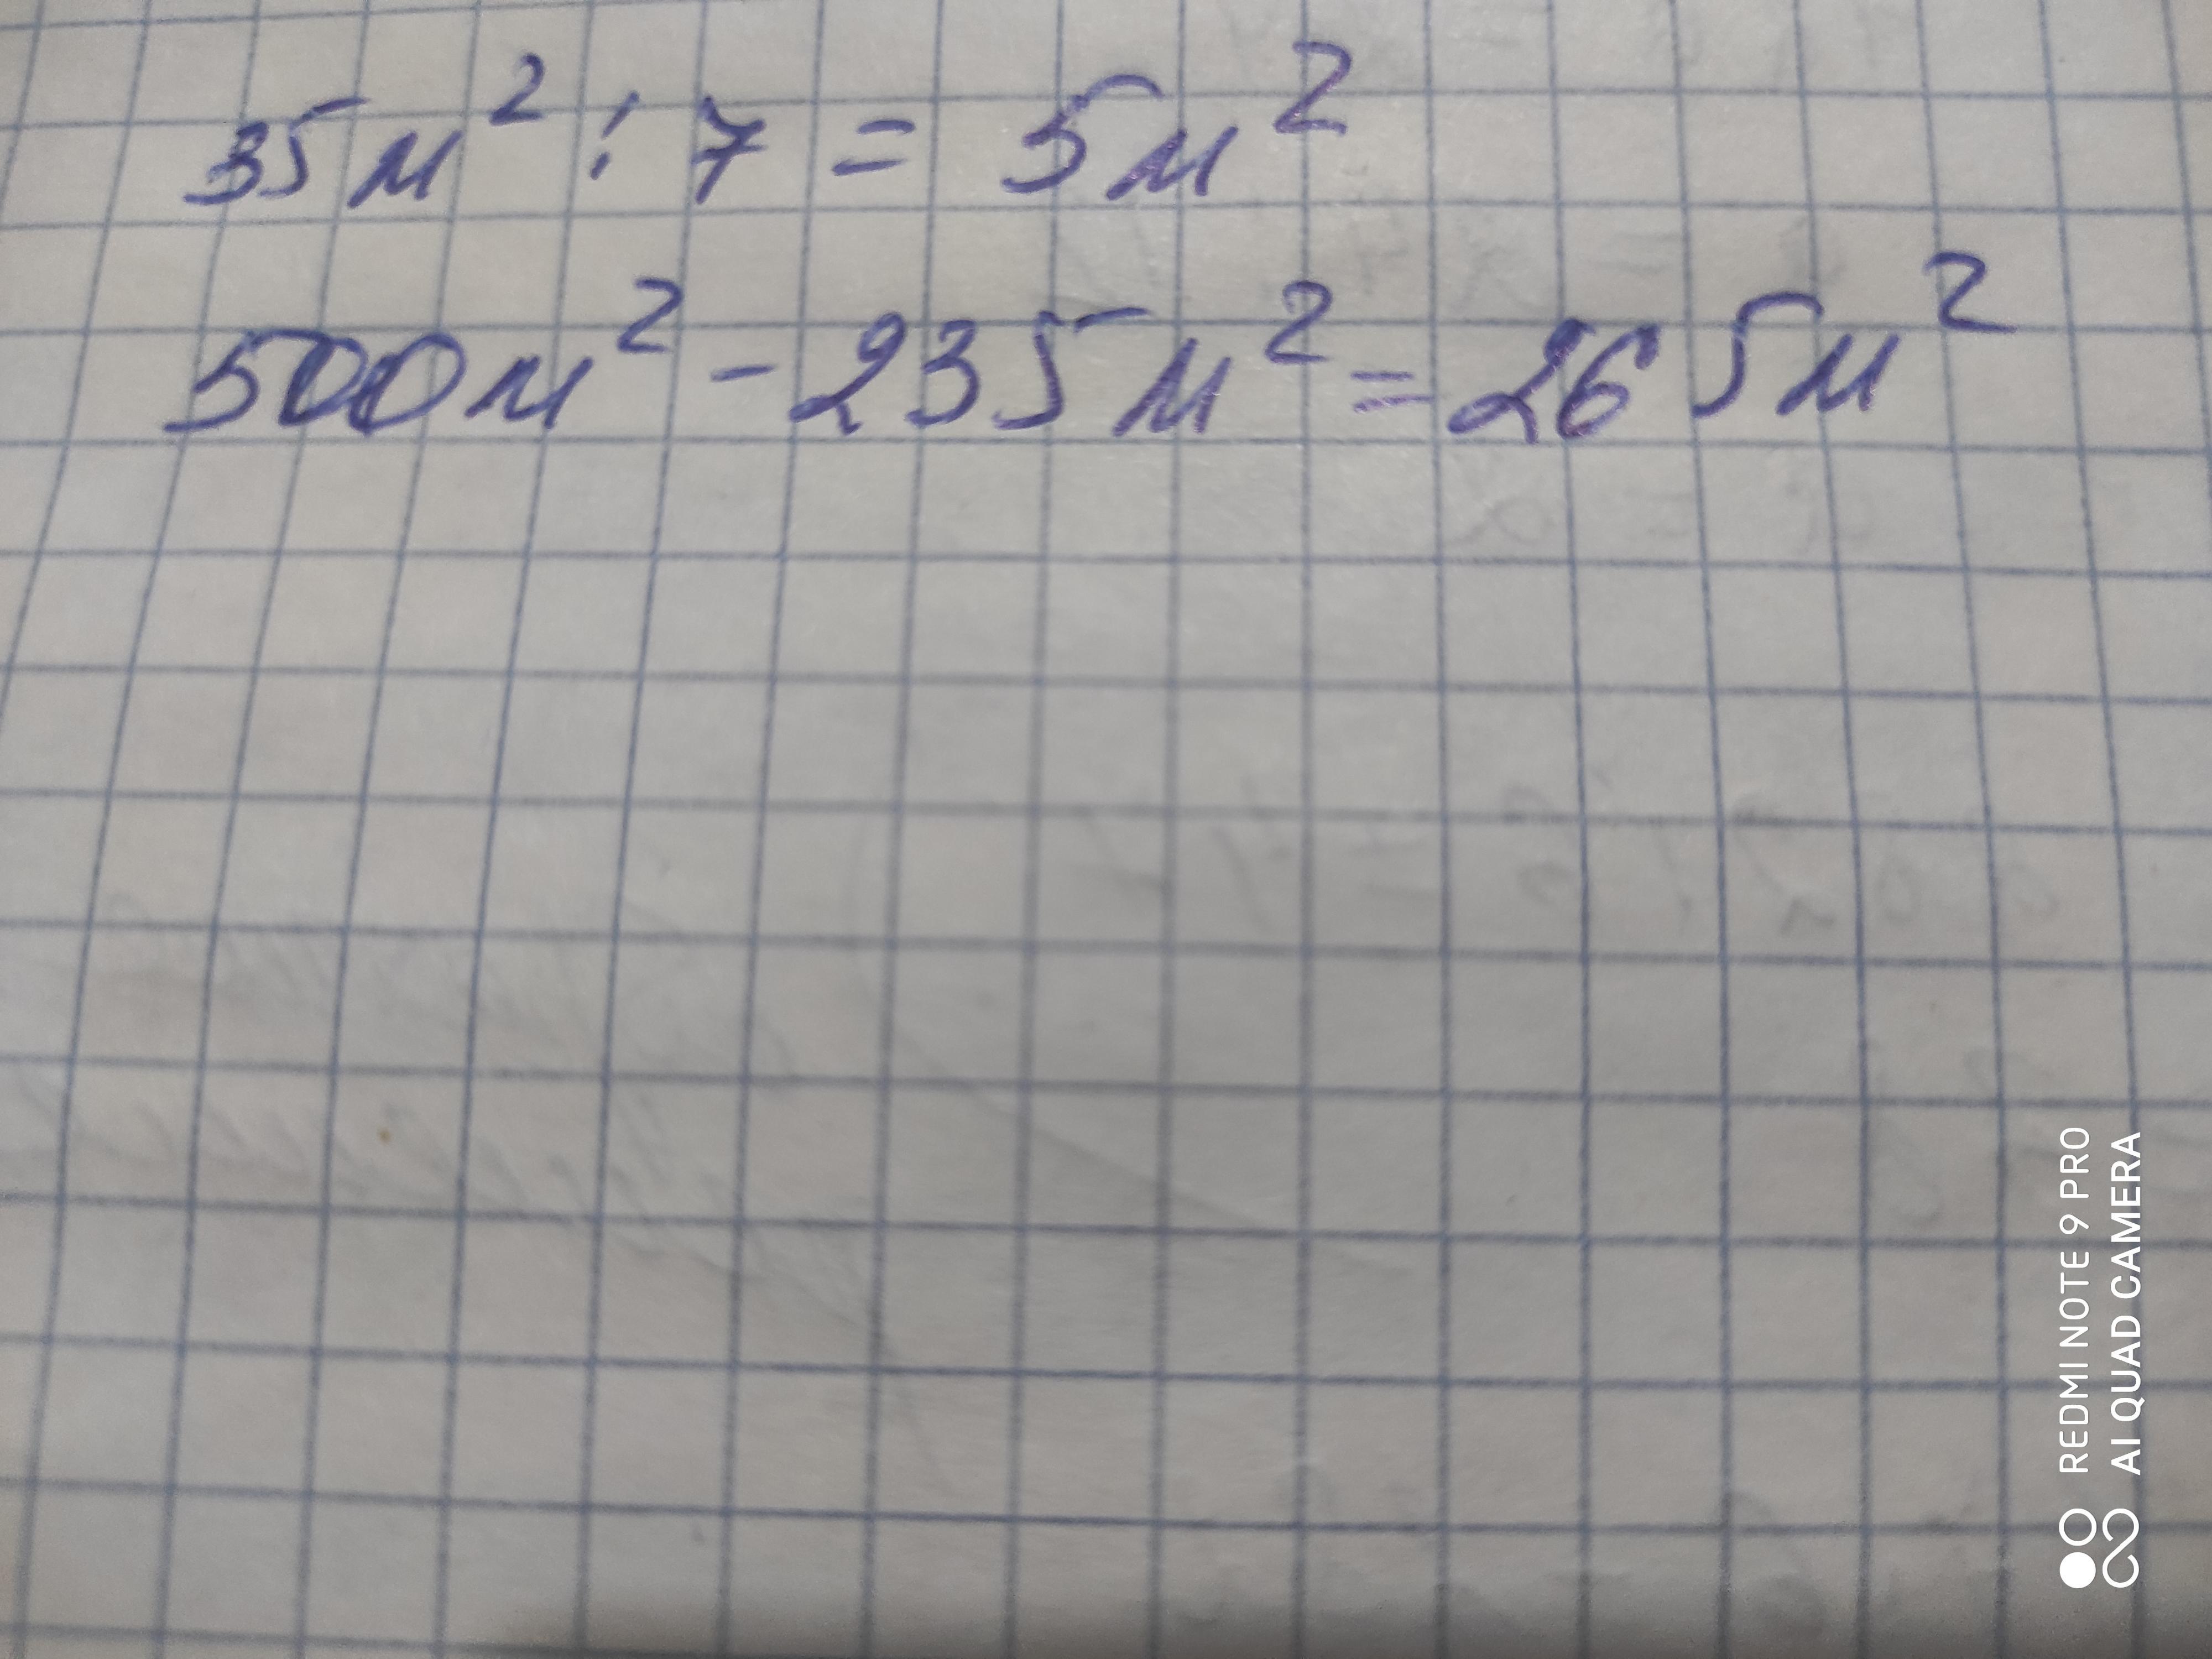 35м² : 7 = 5м²
500м² - 235м² = 265м²
REDMI NOTE 9 PRO
AI QUAD CAMERA